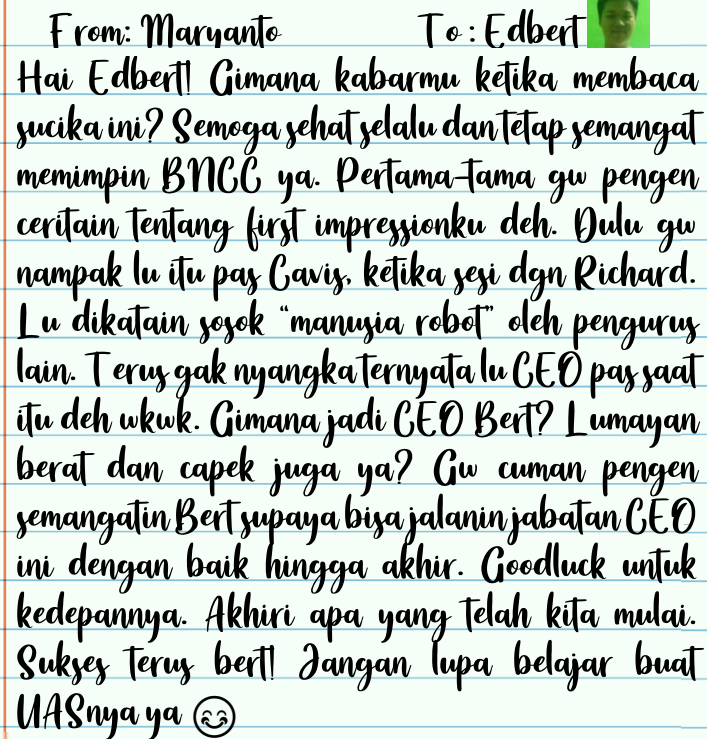 From: Maryanto To : Edbert
Hai Edbert! Gimana kabarmu ketika membaca
sucika ini? Semoga sehat selalu dan tetap semangat
memimpin BNCC ya. Pertama-tama gw pengen
ceritain tentang first impressionku deh. Dulu gw
nampak lu itu pas Cavis, ketika sesi dgn Richard.
Lu dikatain sosok “manusia robot” oleh pengurus
lain. Terus gak nyangka ternyata lu CEO pas saat
itu deh wkwk. Gimana jadi CEO Bert? Lumayan
berat dan capek juga ya? Gw cuman pengen
semangatin Bert supaya bisa jalanin jabatan CEO
ini dengan baik hingga akhir. Goodluck untuk
kedepannya. Akhiri apa yang telah kita mulai.
Sukses terus bert! Jangan lupa belajar buat
UASnya ya 😊